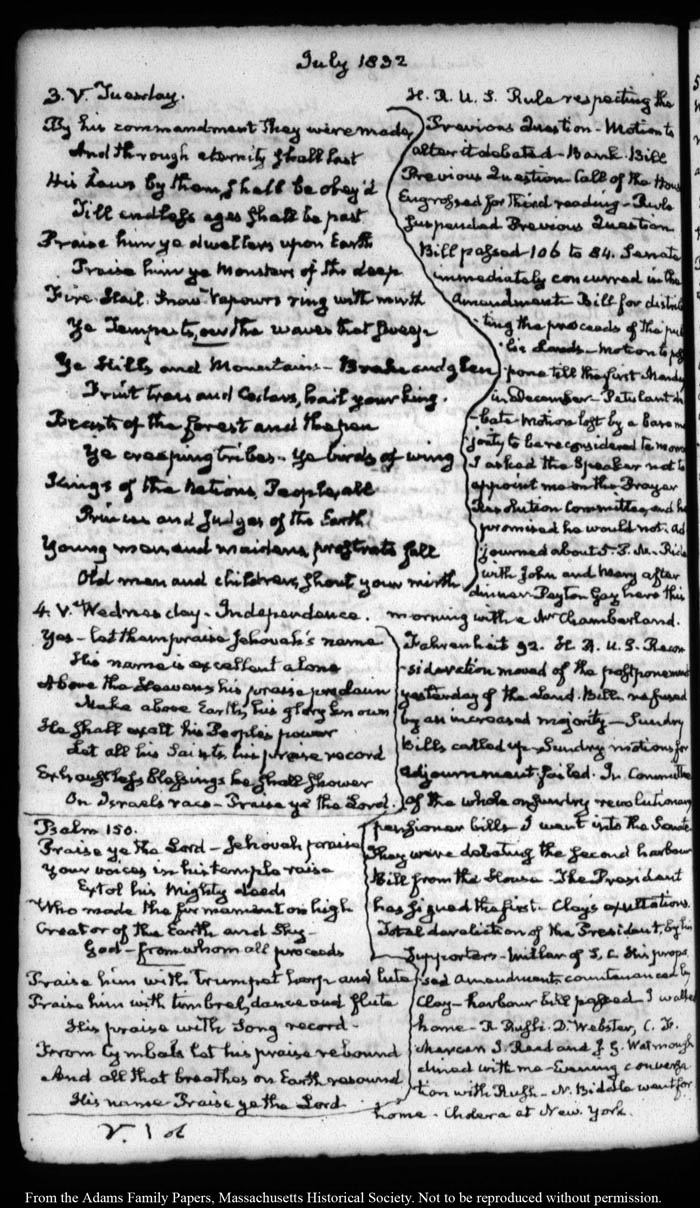 July 1832
3. V. Tuesday.
By his commandment They were made,
And through eternity shall last
His Laws by them, shall be obey'd
Till endless ages shall be past
Praise him ye dwellers upon Earth
Praise him ye Monsters of the deep
Fire Hail Snow Vapours ring with mirth
Ye Tempests, over the waves that sweep
Ye Hills and Mountains - Brake and glen
Fruit trees and Cedars, hail your King.
Beasts of the forest and the pen
Ye creeping tribes - Ye birds of wing
Kings of the Nations, People all
Princes and Judges of the Earth;
Young men, and maidens, prostrate fall
Old men and children, shout your mirth
H. R. U. S. Rule respecting the
Previous Question - Motion to
alter it debated - Bank Bill
Previous Question Call of the Hous
Engrossed for third reading - Rule
suspended Previous Question
Bill passed 106 to 84. Senate
immediately concurred in the
Amendment Bill for distribu
ting the proceeds of the pub
lic Lands - Motion to post
pone till the first Monday
in December - Petulant de
bate Motion lost by a bare ma
jority to be reconsidered to morro
I asked the Speaker not to
appoint me on the Prayer
Resolution Committee, and he
promised he would not. ad
journed about 5. P. M. - Ride
with John and Mary after
dinner Payton Gay here this
morning with a Mr Chamberland.
4. V. Wednesday - Independence.
Yes - let them praise Jehovah's name
His name is excellent alone
Above the Heavens his praise proclaim
Make above Earth, his glory known
He shall exalt his Peoples power
Let all his Saints, his praise record
Exhaustless blessings he shall shower
On Israels race - Praise ye the Lord.
Psalm 150.
Praise ye the Lord - Jehovah praise
Your voices in his temple raise
Extol his Mighty deeds
Who made the firmament on high
Creator of the Earth and Sky -
God - from whom all proceeds
Praise him with Trumpet harp and lute
Praise him with timbrel, dance and flute
His praise with Song record -
From Cymbals let his praise rebound
And all that breathes on Earth resound
His name Praise ye the Lord.
Fahrenheit 92. H. R. U. S. Recon
sideration moved of the postponement
yesterday of the Land Bill. refused
by an increased majority - Sundry
Bills called up - Sundry motions for
adjournment failed. In Committee
of the whole on sundry revolutionary
pensioner bills I went into the Senate
They were debating the second harbour
Bill from the House - The President
has signed the first - Clay's exultations.
Total dereliction of the President, by his
Supporters - Miller of S. C. His propo
sed Amendment, countenanced by
Clay - harbour bill passed I walked
home - R Rush. D. Webster, C. F.
Mercer J. Reed and J. G. Watmough
dined with me - Evening conversa
tion with Rush - N. Biddle went for
home - Cholera at New York.
From the Adams Family Papers, Massachusetts Historical Society. Not to be reproduced without permission.